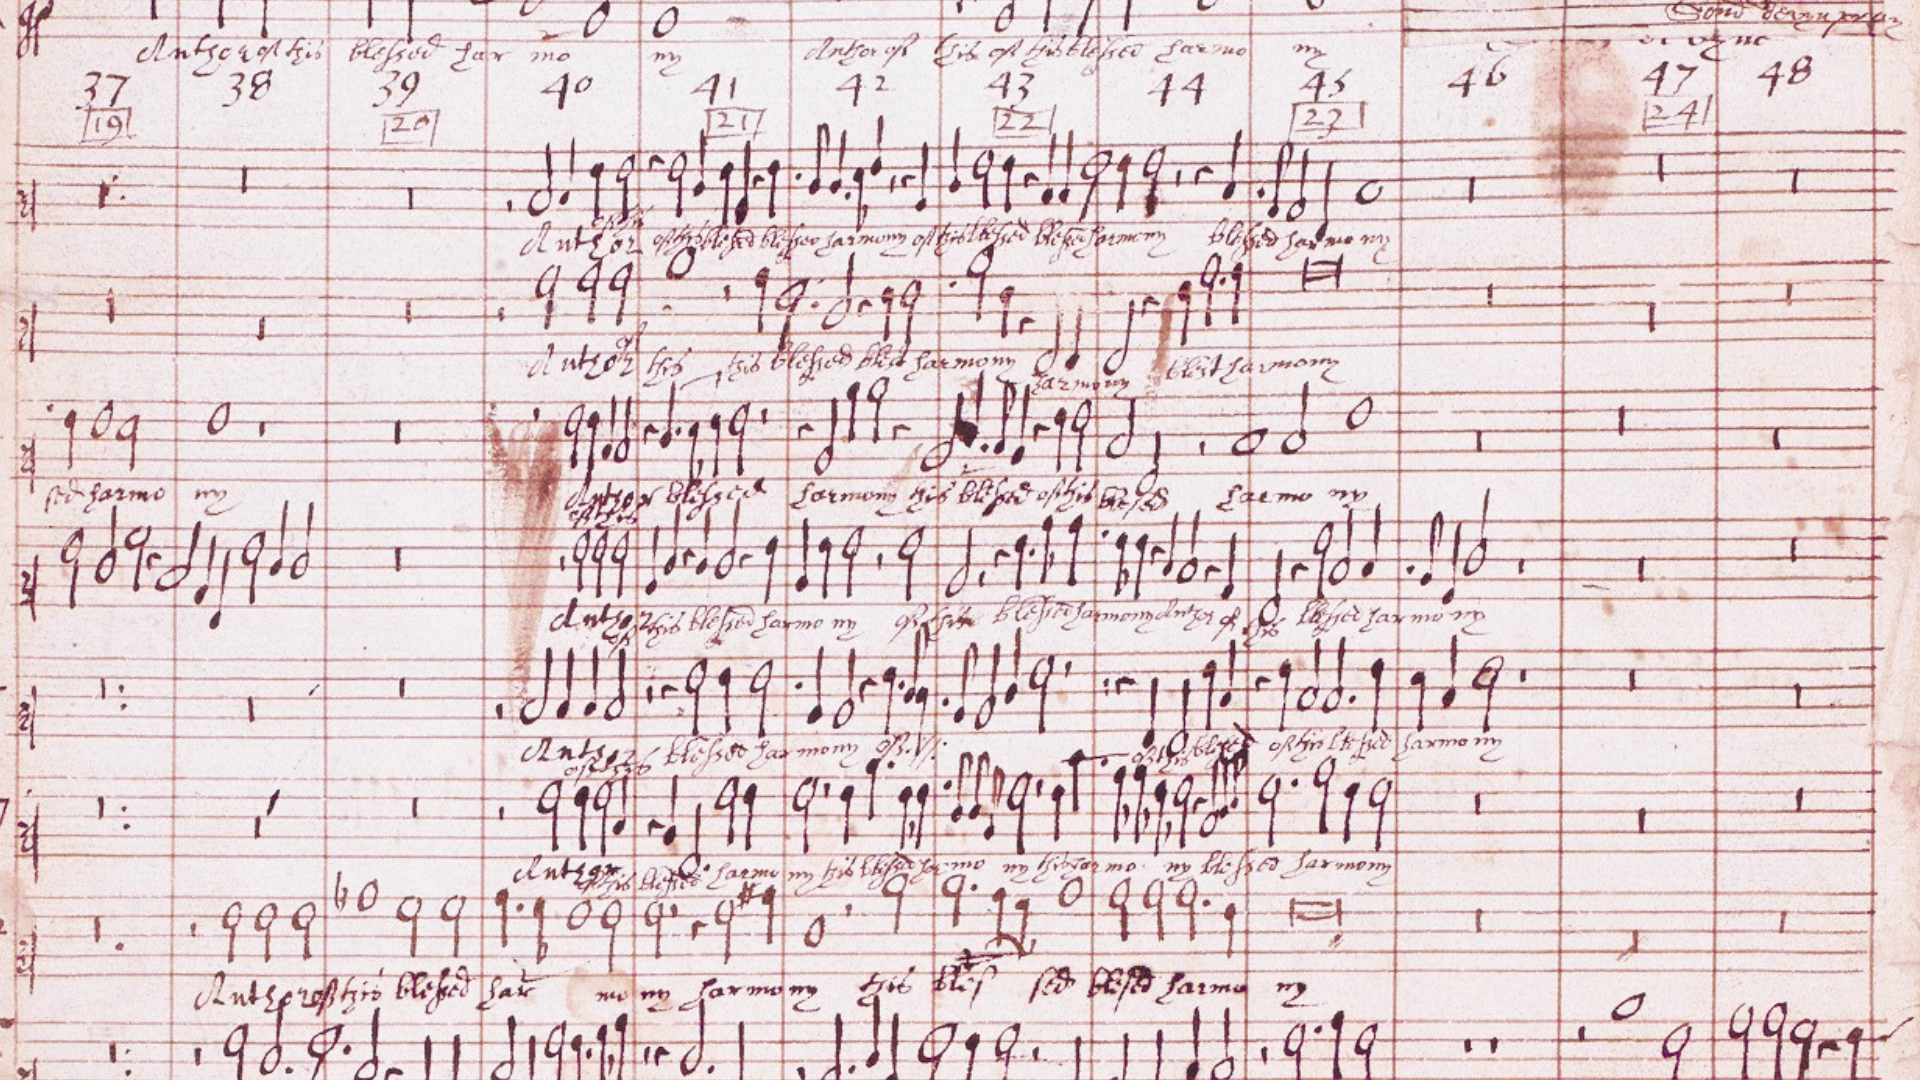 Author of this blessed har mo ny Author of this of this blessed harmo ny
37 38 39 40 41 42 43 44 45 46 47 48
19 20 21 22 23 24
Author of this blessed blessed harmony of this blessed blessed harmony blessed harmony
Author of this this blessed blest harmony harmony blest harmony
sed harmo ny Author of this blessed harmony this blessed of this blessed harmo ny
Author of this blessed harmo ny of this blessed harmony Author of this blessed harmony
Author of this blessed harmony of this blessed of this blessed harmony
Author of this blessed harmo ny this blessed harmo ny this harmo ny blessed harmony
Author of this blessed har mo ny harmony this bles sed blessed harmo ny